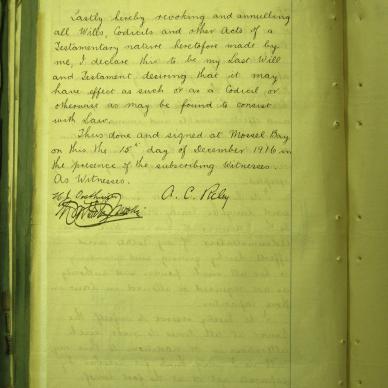 Lastly hereby revoking and annulling
all Wills, Codicils and other Acts of a
Testamentary nature heretofore made by
me, I declare this to be my Last Will
and Testament desiring that it may
have effect as such or as a Codicil or
otherwise as may be found to consist
with Law.
Thus done and signed at Mossel Bay
on this the 15th day of December 1916 in
the presence of the subscribing Witnesses.
As Witnesses.
A. C.